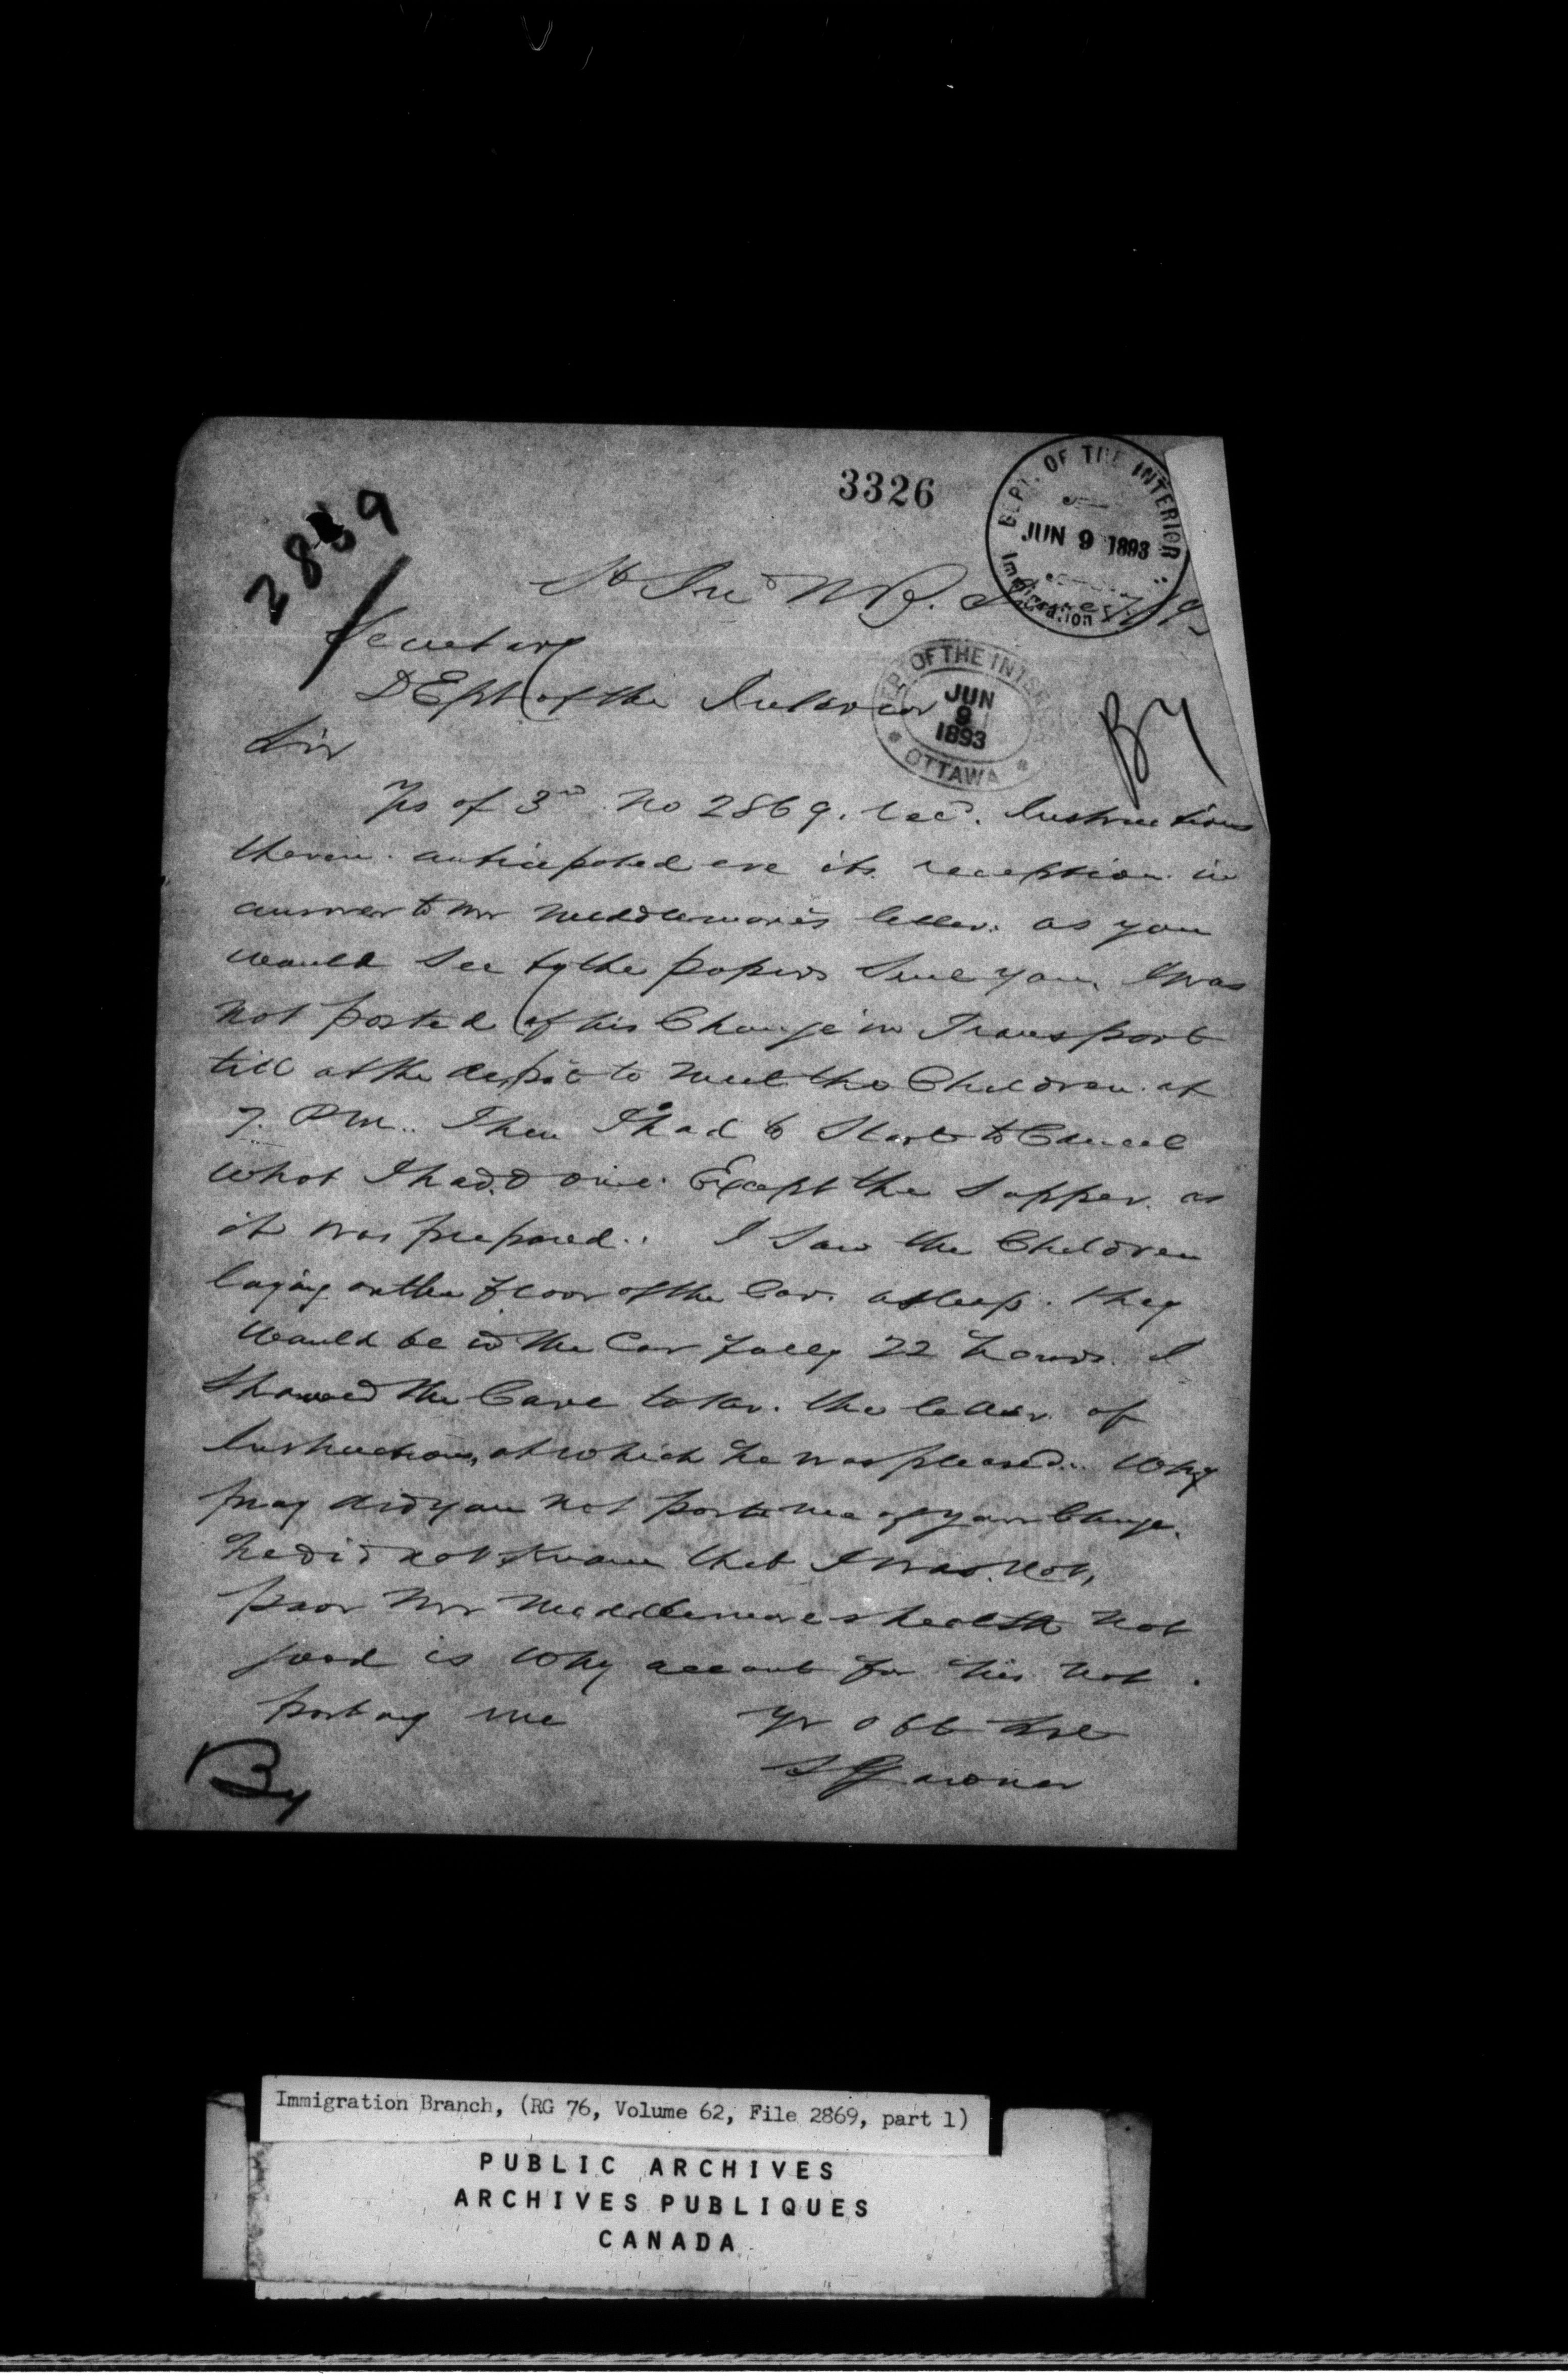 3326
DEPT. OF THE INTERIOR
JUN 9 1893
Immigration
2869
St Jno NB. June 7/93
Secretary
DEpt of the Interior
DEPT OF THE INTERIOR
JUN
9
1893
OTTAWA
By
Sir
Yrs of 3rd No 2869. recd. Instructions
therein. anticipated ere its reception in
answer to Mr Middlemore's letter. as you
would See by the papers Sent you. I was
not posted of his Change in Transport
till at the depot to meet the Children at
7. PM.. Then I had to Start to Cancel
what I had done. Except the Supper. as
it was prepared.. I Saw the Children
laying on the floor of the Car. asleep. they
would be in the Car fully 22 hours. I
Showed the Care taker. the letter of
Instructions, at which he was pleased.. Why
pray did you not poste me of your Change.
he did not know that I was not,
poor Mr Middlemores health not
good is why account for his not
posting me
Yr obt Svt
S Gardner
By
Immigration Branch, (RG 76, Volume 62, File 2869, part 1)
PUBLIC ARCHIVES
ARCHIVES PUBLIQUES
CANADA